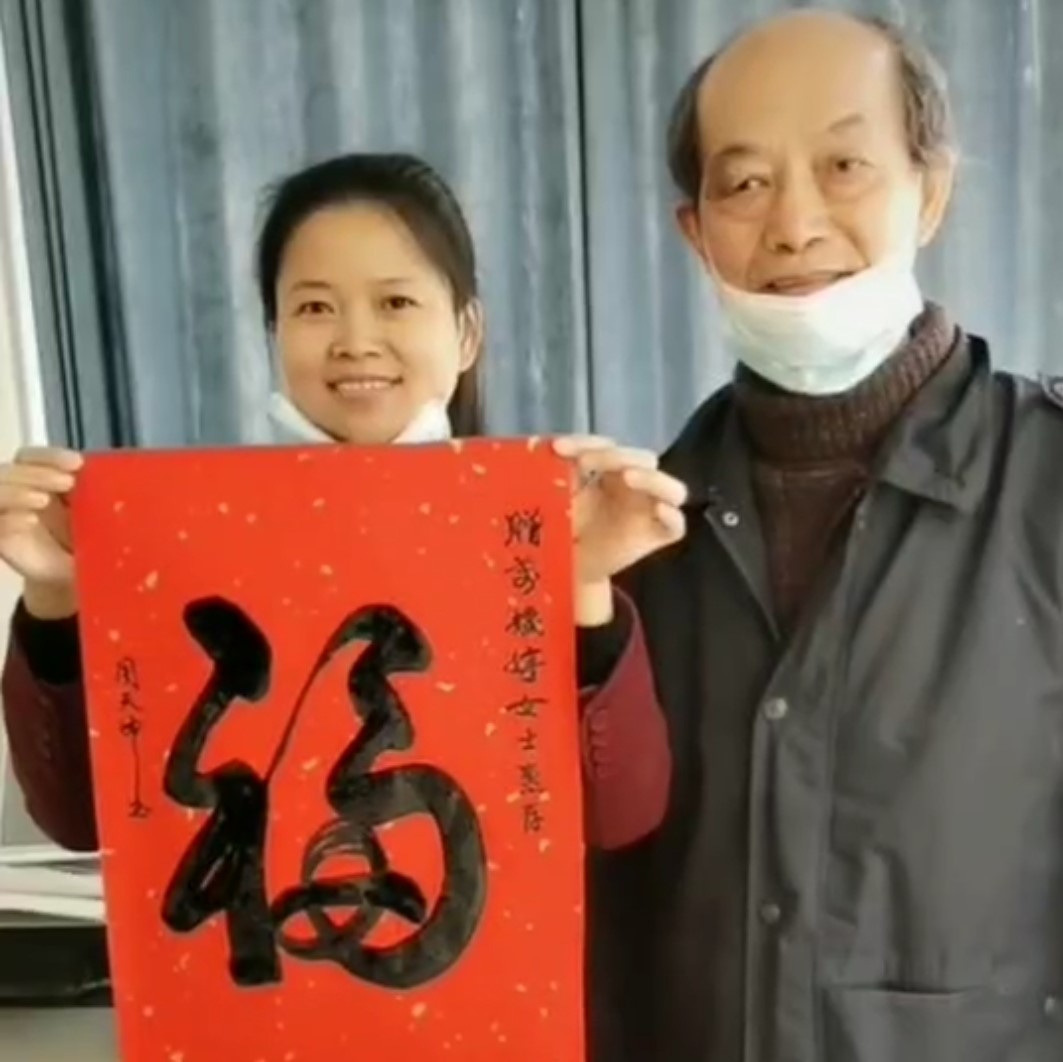 赠婷女士惠存
福
周天书